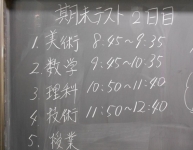 期末テスト 2日目
1. 美術 8:45〜9:35
2. 数学 9:45〜10:35
3. 理科 10:50〜11:40
4. 技術 11:50〜12:40
5. 授業